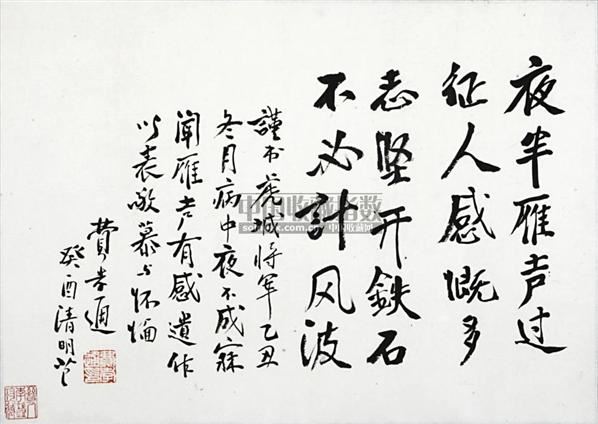 夜半雁声过
征人感慨多
志坚开鉄石
不必計风波
謹书虎城将军乙丑
冬月病中夜不成寐
闻雁声有感遗作
以表敬慕与怀缅
費孝通
癸酉清明节
中国收藏指数
中国收藏网